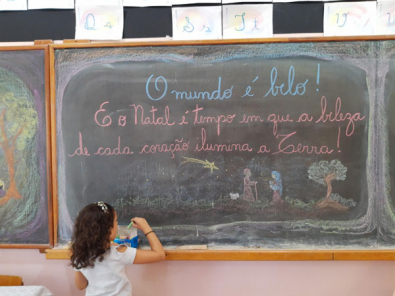 Ss Tt
O mundo é belo!
E o Natal é tempo em que a beleza
de cada coração ilumina a Terra!